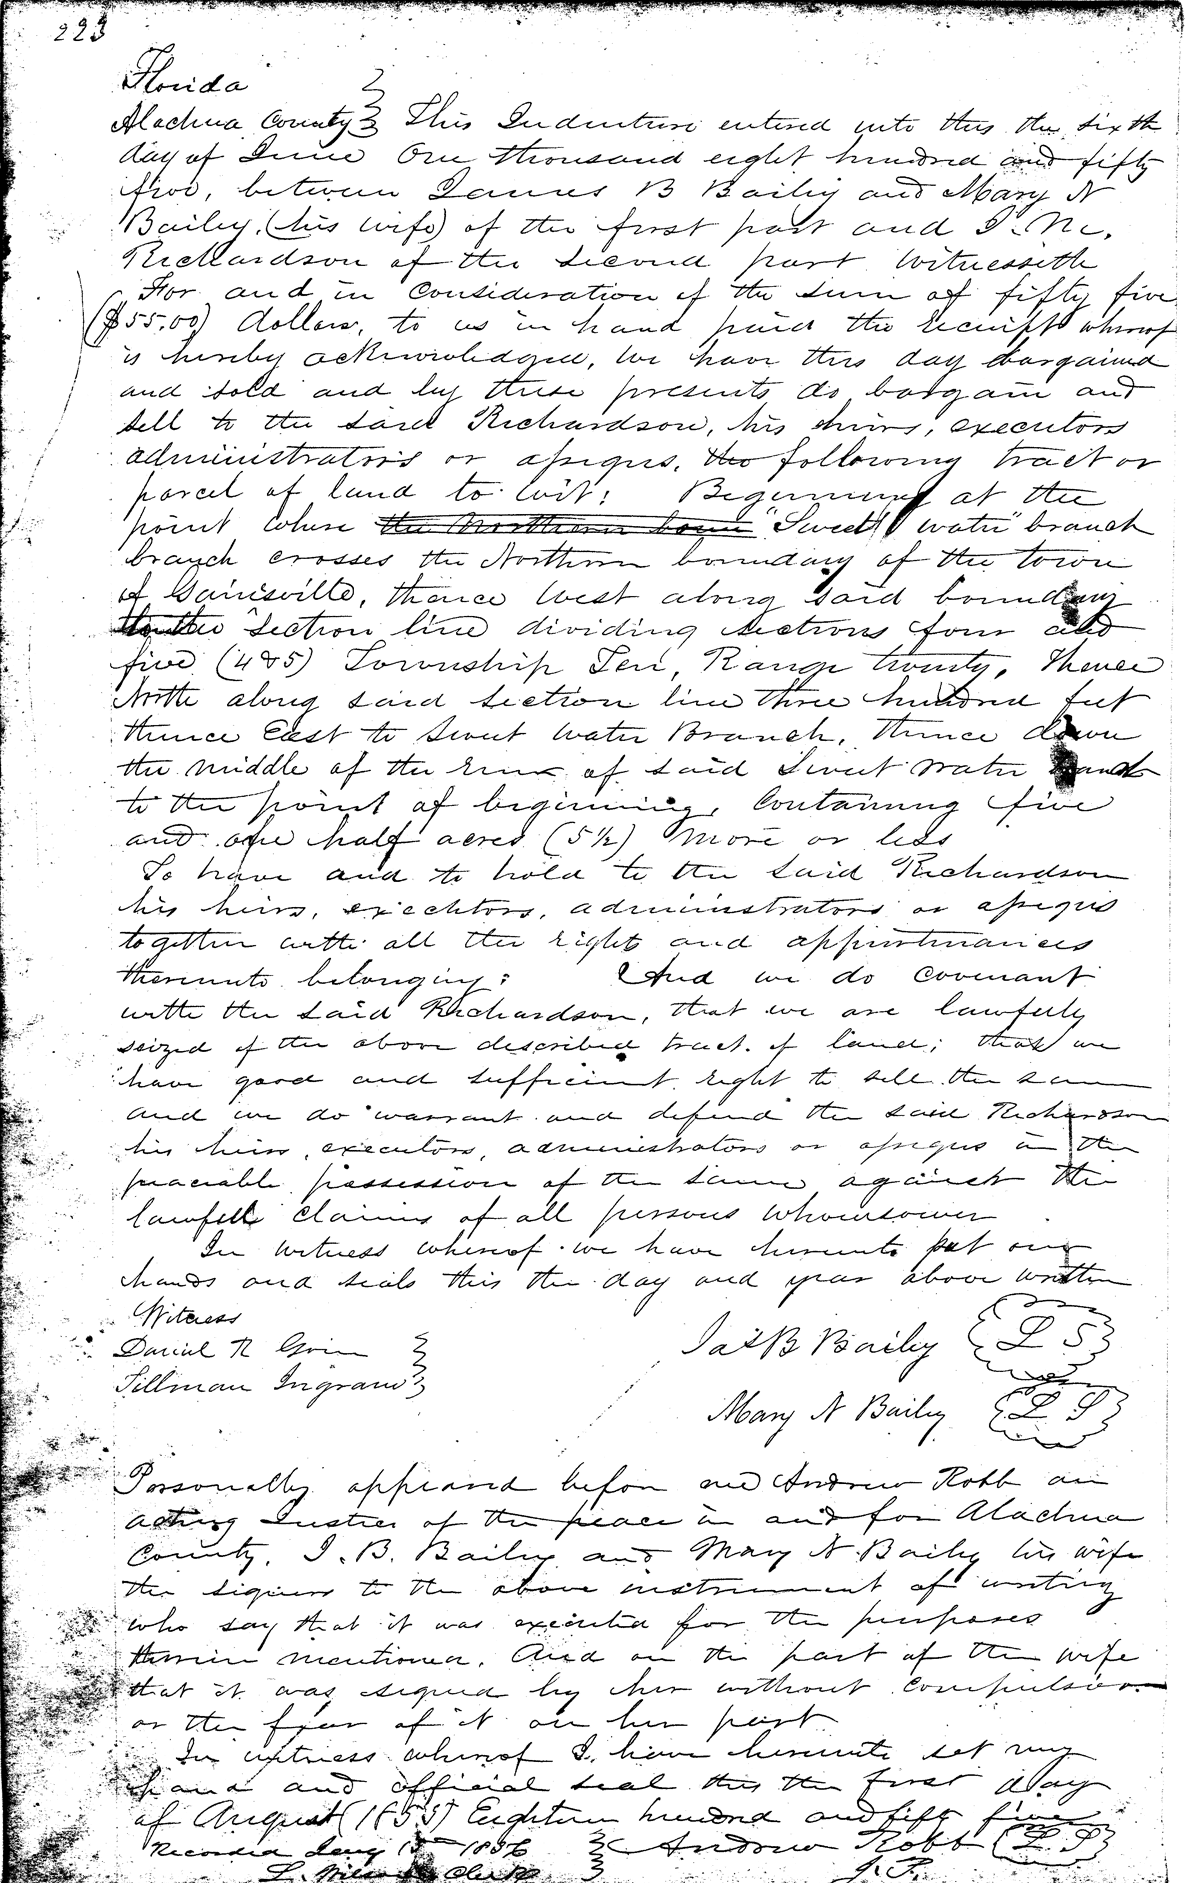 223
Florida
Alachua County } This Indenture entered into this the sixth
day of June One thousand eight hundred and fifty
five, between James B Bailey and Mary N
Bailey, (his wife) of the first part and
Richardson of the second part Witnesseth
For and in Consideration of the sum of fifty five
($55,00) dollars, to us in hand paid the receipt whereof
is hereby acknowledged, We have this day bargained
and sold and by these presents do bargain and
sell to the said Richardson, his heirs, executors
administrators or assigns, the following tract or
parcel of land to wit: Beginning at the
point where the Northern boun "Sweet water" branch
branch crosses the Northern boundary of the town
of Gainsville, thence West along said boundary
to the Section line dividing sections four and
five (4&5) Township Ten, Range twenty, Thence
North along said section line three hundred feet
thence East to Sweet Water Branch, thence down
the middle of the run of said Sweet water
to the point of beginning, Containing five
and one half acres (5½) More or less
To have and to hold to the said Richardson
his heirs, executors, administrators or assigns
together with all the right and appurtenances
thereunto belonging: And we do covenant
with the said Richardson, that we are lawfully
seized of the above described tract of land; that we
have good and sufficient right to sell the same
and we do warrant and defend the said Richardson
his heirs, executors, administrators or assigns in the
peaceable possession of the same against the
lawfull claims of all persons whomsoever
In witness whereof we have hereunto put our
hands and seals this the day and year above written
Witness
Daniel R
Tillman Ingram
Jas B Bailey {L S}
Mary N Bailey {L S}
Personally appeared before me Andrew Robb an
acting Justice of the peace in and for Alachua
County, J. B. Bailey and Mary N Bailey his wife
the signers to the above instrument of writing
who say that it was executed for the purposes
therein mentioned, And on the part of the wife
that it was signed by her without compulsion
or the fear of it on her part
In witness whereof I have hereunto set my
hand and official seal this the first day
of August (1855) Eighteen hundred and fifty five
Recorded 1856 Andrew Robb {L.S}
L. Clerk J. P.